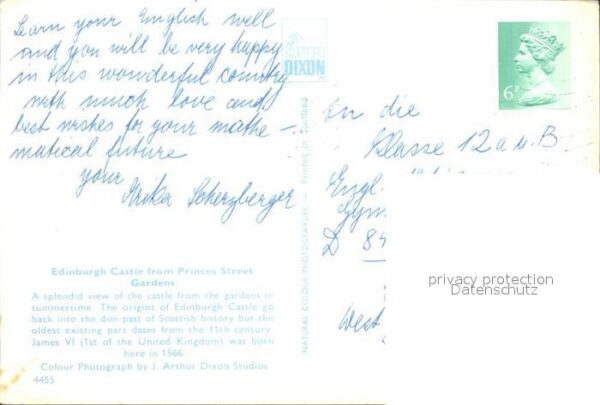 Learn your English well
and you will be very happy
in this wonderful country
with much love and
best wishes for your mathe-
matical future
your
Erika Scherzberger
Edinburgh Castle from Princes Street
Gardens
A splendid view of the castle from the gardens in
summertime. The origins of Edinburgh Castle go
back into the dim past of Scottish history but the
oldest existing part dates from the 11th century.
James VI (1st of the United Kingdom) was born
here in 1566
Colour Photograph by J. Arthur Dixon Studios
4455
DIXON
NATURAL COLOUR PHOTOGRAVURE — Printed in Scotland
6P
An die
Klasse 12a u. B
Engl.
Gym
D 84
West
privacy protection
Datenschutz